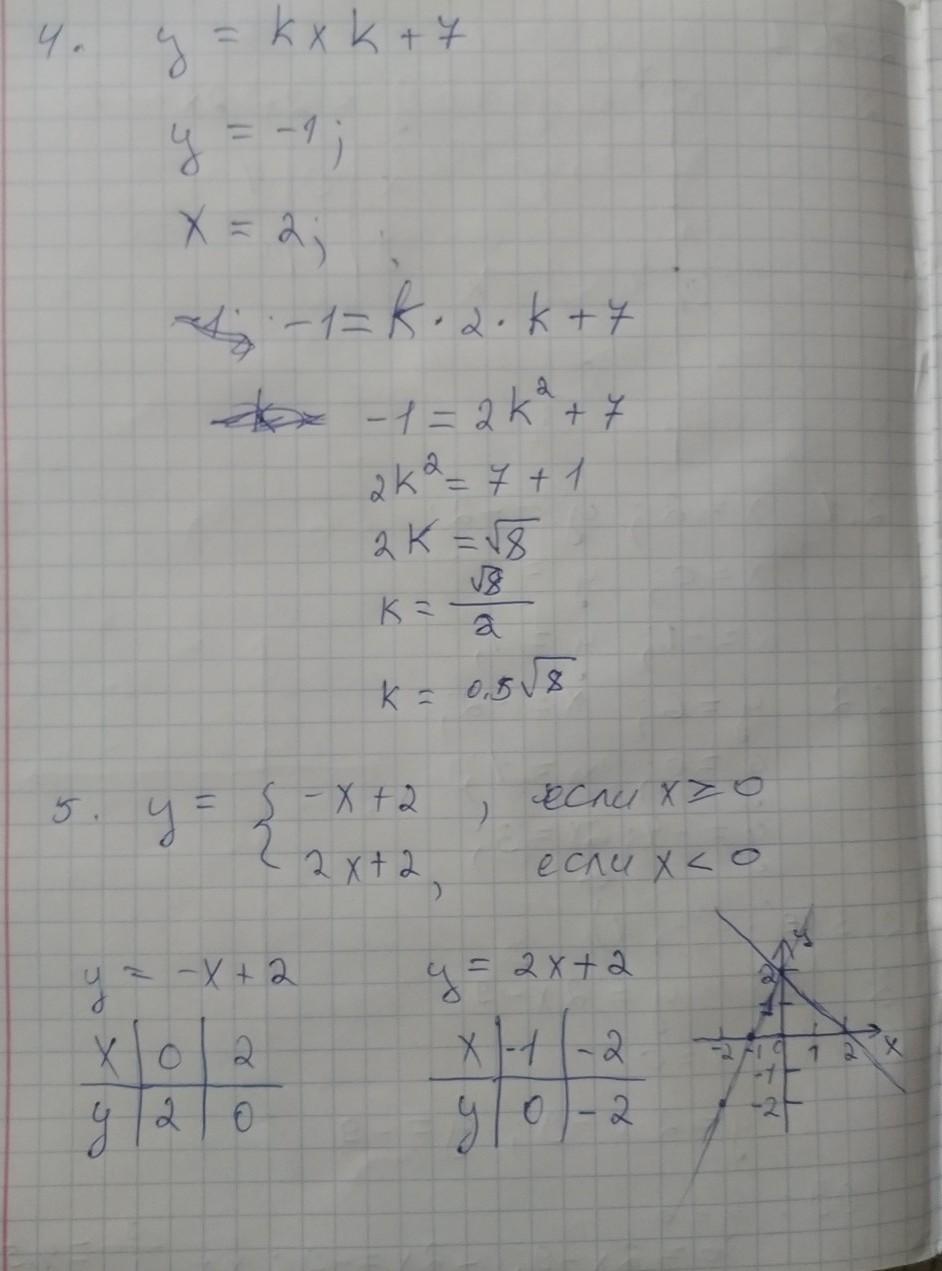 4. y = k x k + 7
y = -1;
x = 2;
-1 = k · 2 · k + 7
-1 = 2k² + 7
2k² = 7 + 1
2k = √8
k = √8/2
k = 0.5√8
5. y = { -x + 2, если x ≥ 0
2x + 2, если x < 0
y = -x + 2 y = 2x + 2
x | 0 | 2 x | -1 | -2
y | 2 | 0 y | 0 | -2
y
2
1
-2 -1 0 1 2 x
-1
-2